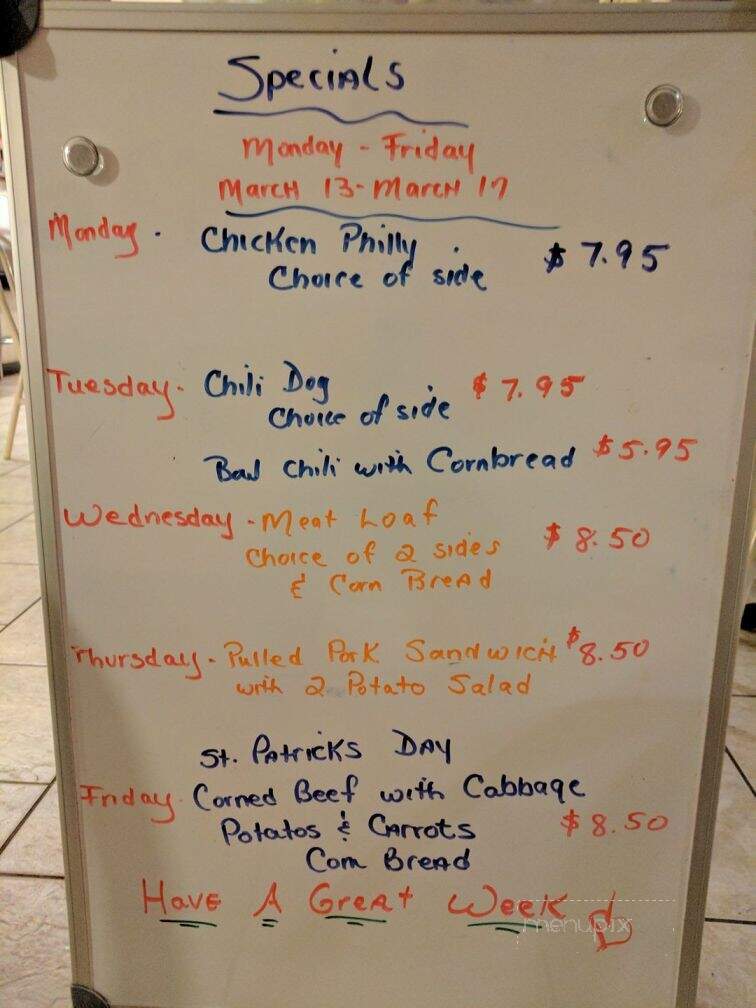 Specials
Monday - Friday
March 13 - March 17
Monday - Chicken Philly $7.95
Choice of side
Tuesday - Chili Dog $7.95
Choice of side
Bowl Chili with Cornbread $5.95
Wednesday - Meat Loaf
Choice of 2 sides $8.50
& Corn Bread
Thursday - Pulled Pork Sandwich $8.50
with 2 Potato Salad
St. Patricks Day
Friday - Corned Beef with Cabbage
Potatos & Carrots $8.50
Corn Bread
Have A Great Week
menupix